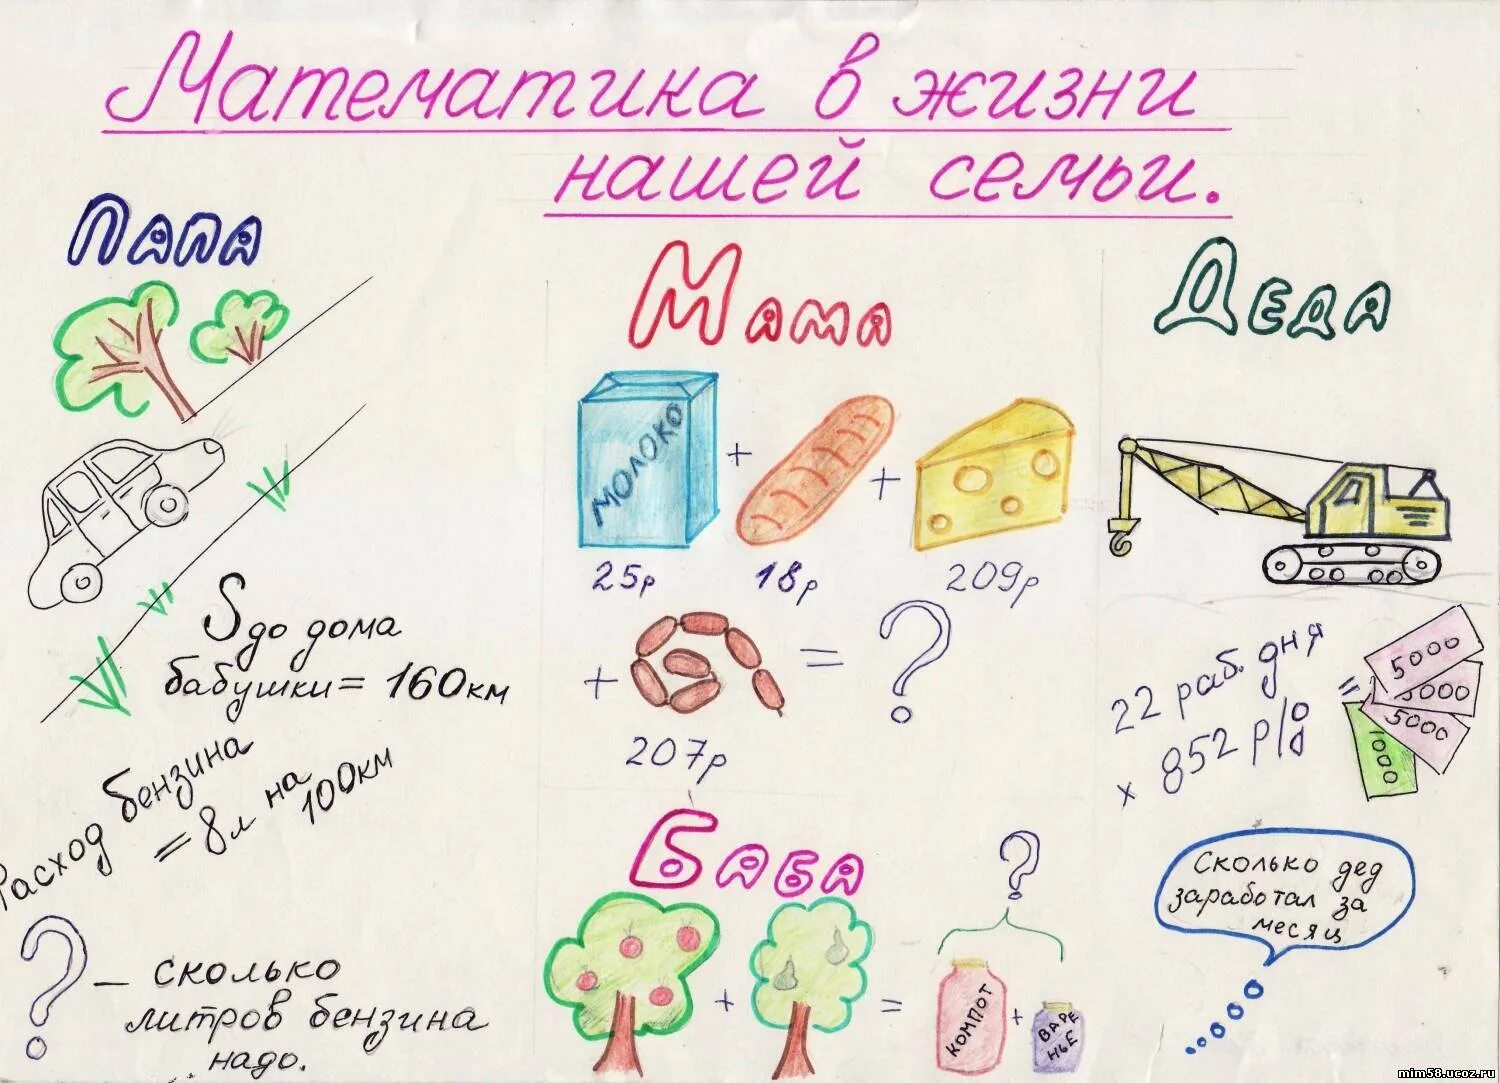 Математика в жизни
нашей семьи.
Папа
S до дома
бабушки = 160км
Расход бензина
= 8л на
100км
? – сколько
литров бензина
надо.
Мама
МОЛОКО
+
+
25р
18р
209р
+
= ?
207р
Баба
?
+
=
КОМПОТ
+
ВАРЕ
НЬЕ
Деда
22 раб. дня
x 852 р/д
=
5000
5000
5000
1000
Сколько дед
заработал за
месяц
mim58.ucoz.ru